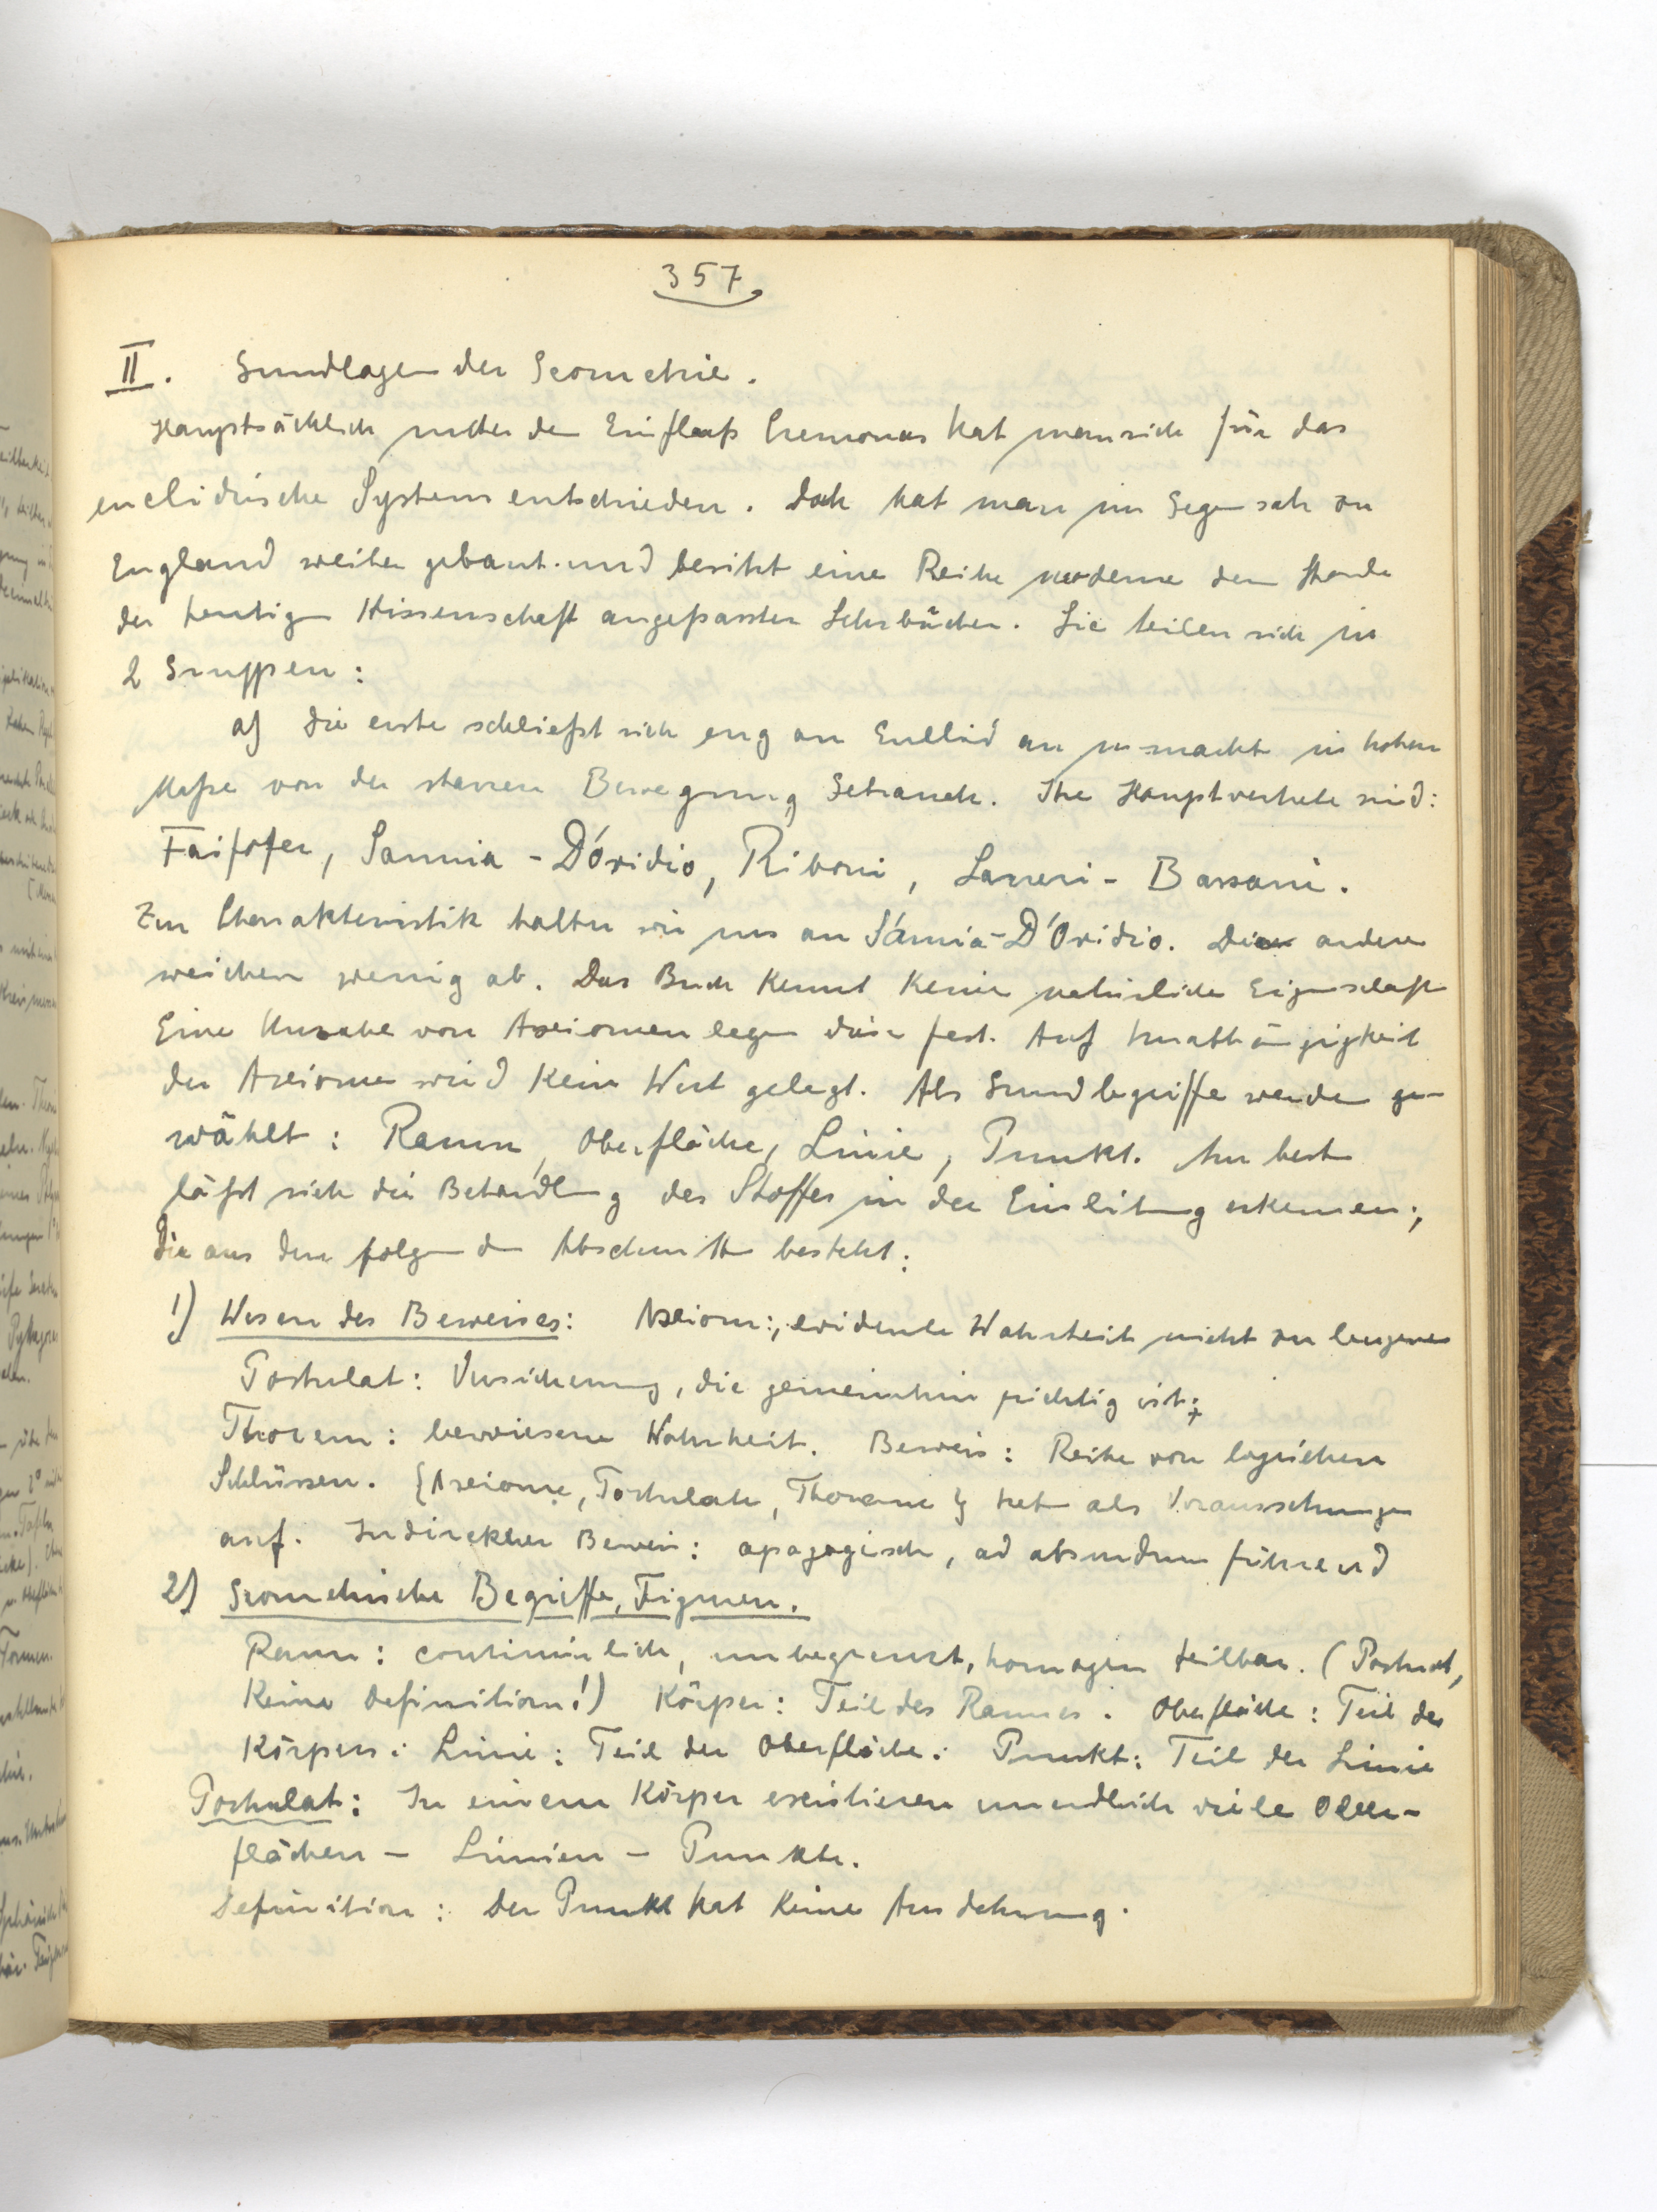 357
II. Grundlagen der Geometrie.
Hauptsächlich unter dem Einfluß Cremonas hat man sich für das
euclidische System entschieden. Doch hat man im Gegensatz zu
England weiter gebaut und besitzt eine Reihe moderne dem Stande
der heutigen Wissenschaft angepasster Lehrbücher. Sie teilen sich in
2 Gruppen:
a) Die erste schließt sich eng an Euklid an u. macht in hohem
Maße von der starren Bewegung Gebrauch. Ihre Hauptvertreter sind:
Faifofer, Sannia - D'Ovidio, Riboni, Lazzeri - Bassani.
Zur Charakteristik halten wir uns an Sannia - D'Ovidio. Die andern
weichen wenig ab. Das Buch kennt keine natürliche Eigenschaft
Eine Unzahl von Axiomen legen diese fest. Auf Unabhängigkeit
der Axiome wird kein Wert gelegt. Als Grundbegriffe werden ge-
wählt: Raum, Oberfläche, Linie, Punkt. Am besten
läßt sich die Behandlung des Stoffes in der Einleitung erkennen;
die aus den folgenden Abschnitten besteht:
1) Wesen des Beweises: Axiom: evidente Wahrheit nicht zu leugnen
Postulat: Versicherung, die gemeinhin richtig ist;
Thorem: bewiesene Wahrheit. Beweis: Reihe von logischen
Schlüssen. {Axiome, Postulate, Thoreme} treten als Voraussetzungen
auf. Indirekter Beweis: apagogisch, ad absurdum führend
2) Geometrische Begriffe, Figuren.
Raum: continuirlich, unbegrenzt, homogen teilbar. (Postulat,
keine Definition!) Körper: Teil des Raumes. Oberfläche: Teil des
Körpers: Linie: Teil der Oberfläche: Punkt: Teil der Linie
Postulat: In einem Körper existieren unendlich viele Ober-
flächen - Linien - Punkte.
Definition: Der Punkt hat keine Ausdehnung.